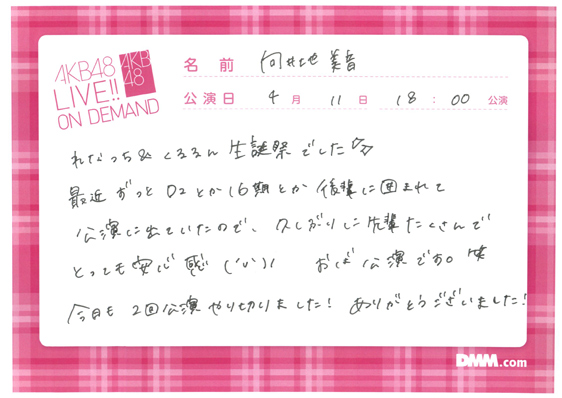 AKB48
LIVE!!
ON DEMAND
AKB
48
名前 向井地 美音
公演日 4月 11日 18:00 公演
れなっち&くるるん 生誕祭でした
最近ずっと D2とか16期とか後輩に囲まれて
公演に出ていたので、久しぶりに先輩たくさんで
とっても安心感 ('ν')ﾉ おば公演です。笑
今日も 2回公演やり切りました! ありがとうございました!
DMM.com